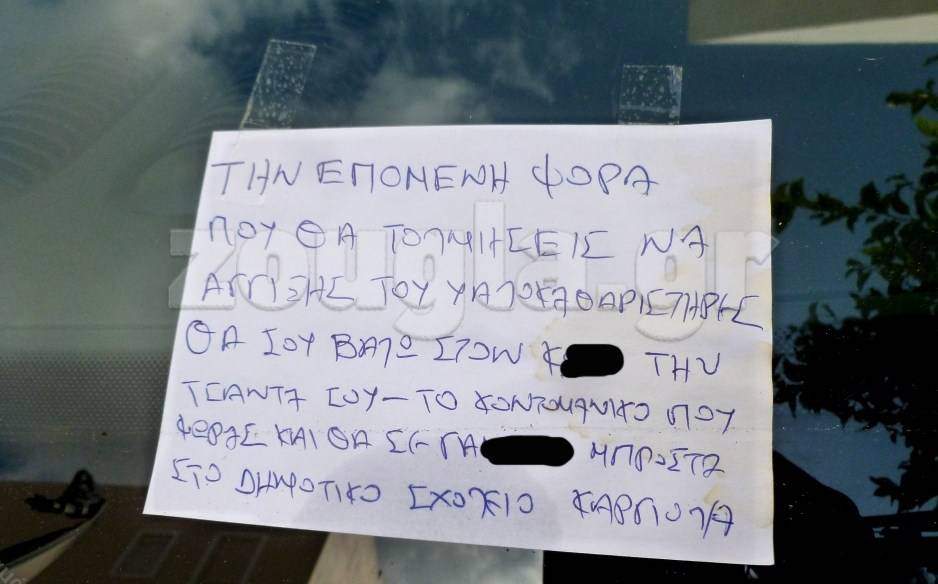 ΤΗΝ ΕΠΟΜΕΝΗ ΦΟΡΑ
ΠΟΥ ΘΑ ΤΟΛΜΗΣΕΙΣ ΝΑ
ΑΓΓΙΞΗΣ ΤΟΥ ΥΑΛΟΚΑΘΑΡΙΣΤΗΡΕΣ
ΘΑ ΣΟΥ ΒΑΛΩ ΣΤΟΝ Κ ΤΗΝ
ΤΣΑΝΤΑ ΣΟΥ - ΤΟ ΚΟΝΤΟΜΑΝΙΚΟ ΠΟΥ
ΦΟΡΑΣ ΚΑΙ ΘΑ ΣΕ ΓΑ ΜΠΡΟΣΤΑ
ΣΤΟ ΔΗΜΟΤΙΚΟ ΣΧΟΛΕΙΟ
zougla.gr